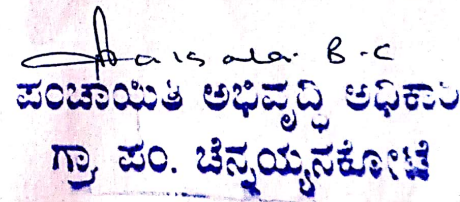 B-C
ಪಂಚಾಯಿತಿ ಅಭಿವೃದ್ಧಿ ಅಧಿಕಾರಿ
ಗ್ರಾ. ಪಂ. ಚೆನ್ನಯ್ಯನಕೋಟೆ